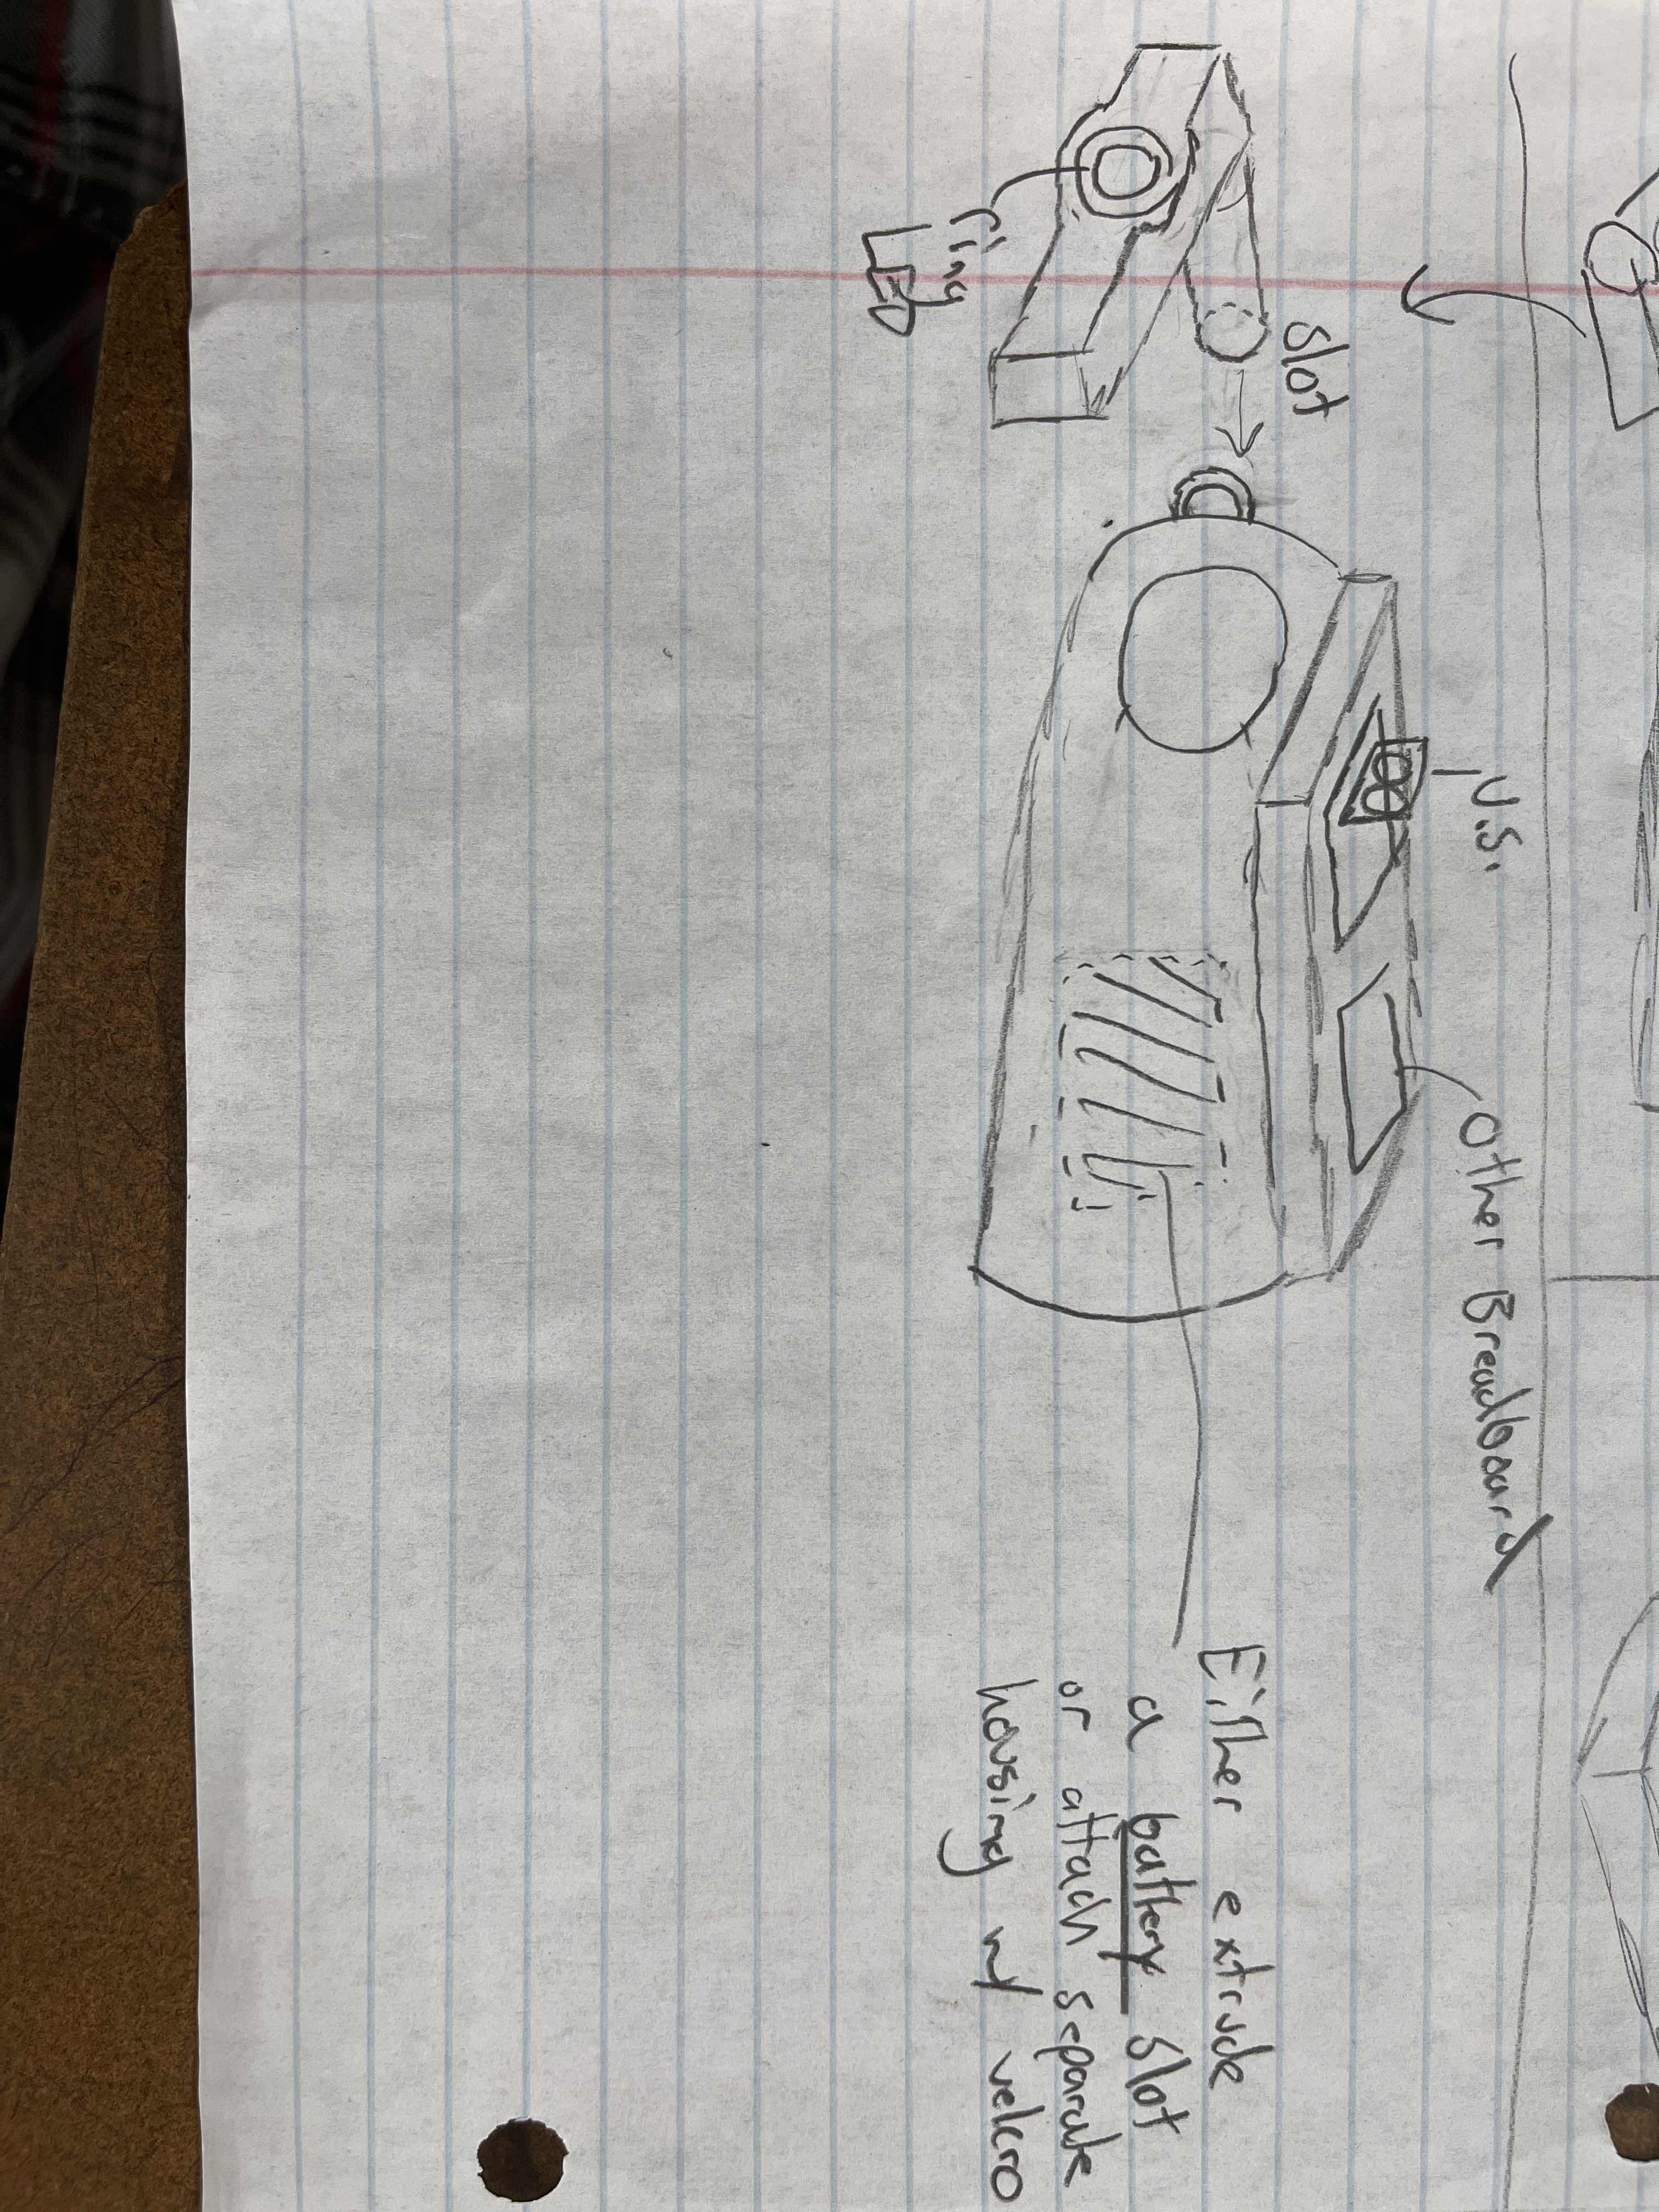 Slot
ring
LED
U.S.
Other Breadboard
Either extrude
a battery slot
or attach separate
housing w/ velcro